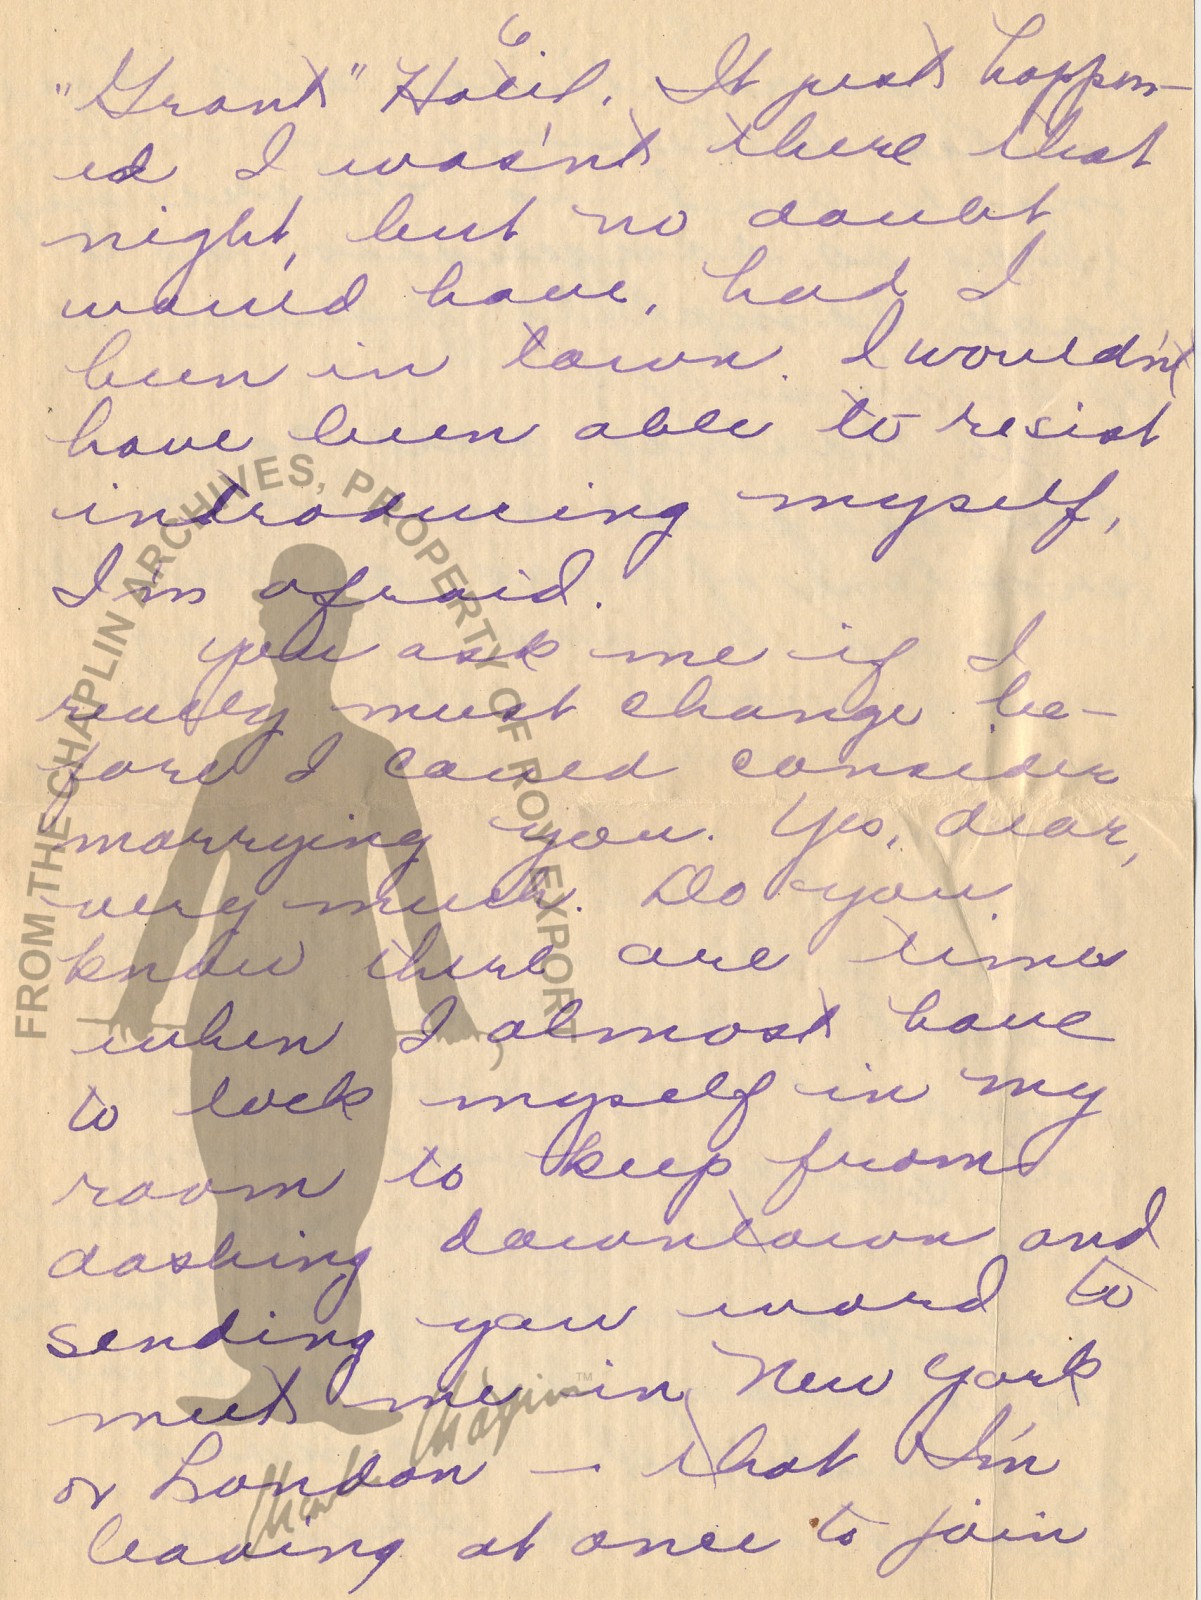 6
"Grant" Hotel. It just happen-
ed I wasn't there that
night, but no doubt
would have, had I
been in town. I wouldn't
have been able to resist
introducing myself,
I'm afraid.
You ask me if I
really must change be-
fore I could consider
marrying you. Yes, dear,
very much. Do you
know there are times
when I almost have
to lock myself in my
room to keep from
dashing downtown and
sending you word to
meet me in New York
or London — that I'm
leaving at once to join
FROM THE CHAPLIN ARCHIVES, PROPERTY OF ROY EXPORT
Charlie Chaplin™